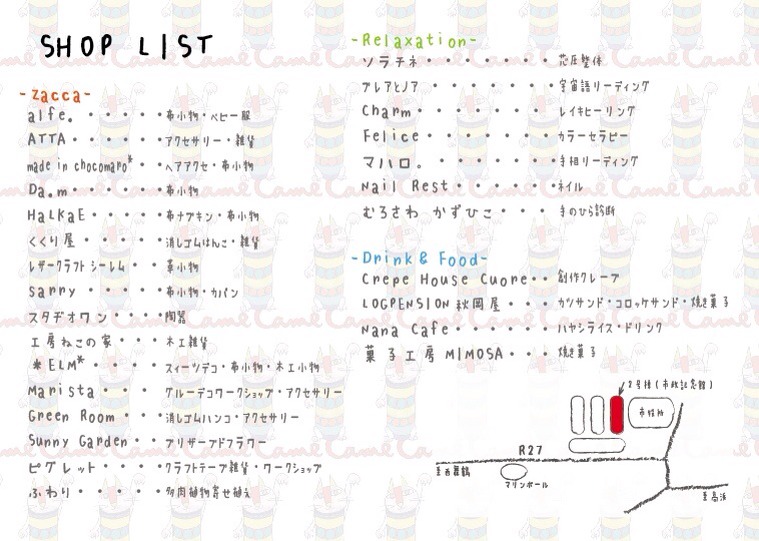 SHOP LIST
-zacca-
alfe。・・・・・布小物・ベビー服
ATTA・・・・・アクセサリー・雑貨
made in chocomaro*・・ヘアアクセ・布小物
Da.m・・・・・布小物
HaLKaE・・・・・布ナプキン・布小物
くくり屋・・・・・消しゴムはんこ・雑貨
レザークラフト シーレム・・革小物
sarry・・・・・布小物・カバン
スタヂオワン・・・・陶器
工房ねこの家・・・木工雑貨
*ELM*・・・・スィーツデコ・布小物・木工小物
Marista・・・グルーデコワークショップ・アクセサリー
Green Room・・・消しゴムハンコ・アクセサリー
Sunny Garden・・プリザーブドフラワー
ピグレット・・・クラフトテープ雑貨・ワークショップ
ふわり・・・・・多肉植物寄せ植え
-Relaxation-
ソラチネ・・・・・・・芯圧整体
アレアとノア・・・・・・宇宙語リーディング
Charm・・・・・・・レイキヒーリング
Felice・・・・・・カラーセラピー
マハロ。・・・・・・手相リーディング
Nail Rest・・・・・ネイル
むろさわ かずひこ・・・手のひら診断
-Drink & Food-
Crepe House Cuore・・創作クレープ
LOGPENSION 秋岡屋・・・カツサンド・コロッケサンド・焼き菓子
Nana Cafe・・・・・ハヤシライス・ドリンク
菓子工房 MIMOSA・・・焼き菓子
2号棟(市政記念館)
市役所
R27
至西舞鶴
マリンボール
至高浜